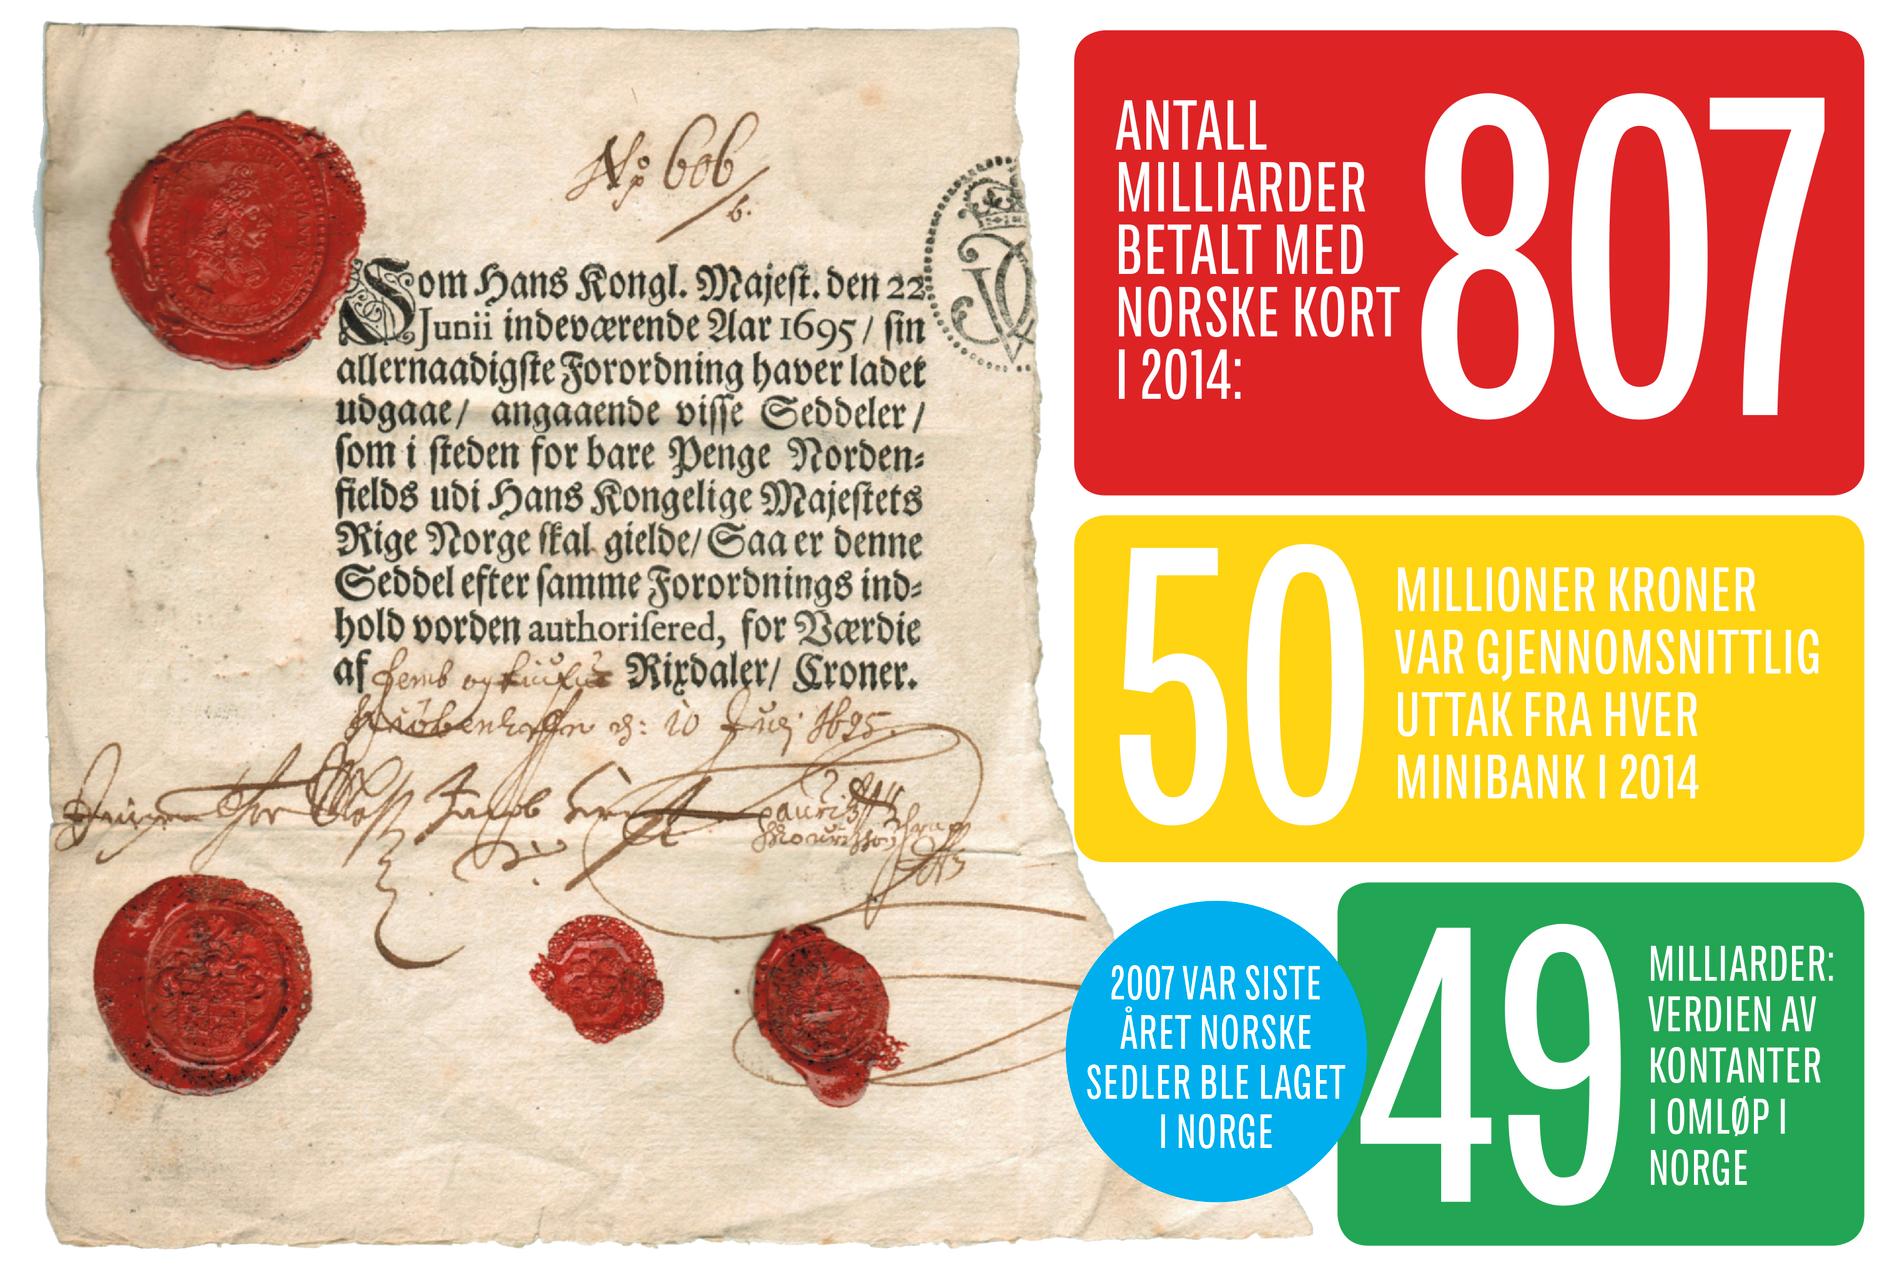 No 606
6.
Som Hans Kongl. Majest. den 22
Junii indeværende Aar 1695/ sin
allernaadigste Forordning haver ladet
udgaae/ angaaende visse Seddeler/
som i steden for bare Penge Norden-
fields udi Hans Kongelige Majestets
Rige Norge skal gielde/ Saa er denne
Seddel efter samme Forordnings ind-
hold vorden authorisered, for Værdie
af femb og tiufue Rixdaler/ Croner.
10 1695.
ANTALL
MILLIARDER
BETALT MED
NORSKE KORT
I 2014:
807
50
MILLIONER KRONER
VAR GJENNOMSNITTLIG
UTTAK FRA HVER
MINIBANK I 2014
2007 VAR SISTE
ÅRET NORSKE
SEDLER BLE LAGET
I NORGE
49
MILLIARDER:
VERDIEN AV
KONTANTER
I OMLØP I
NORGE